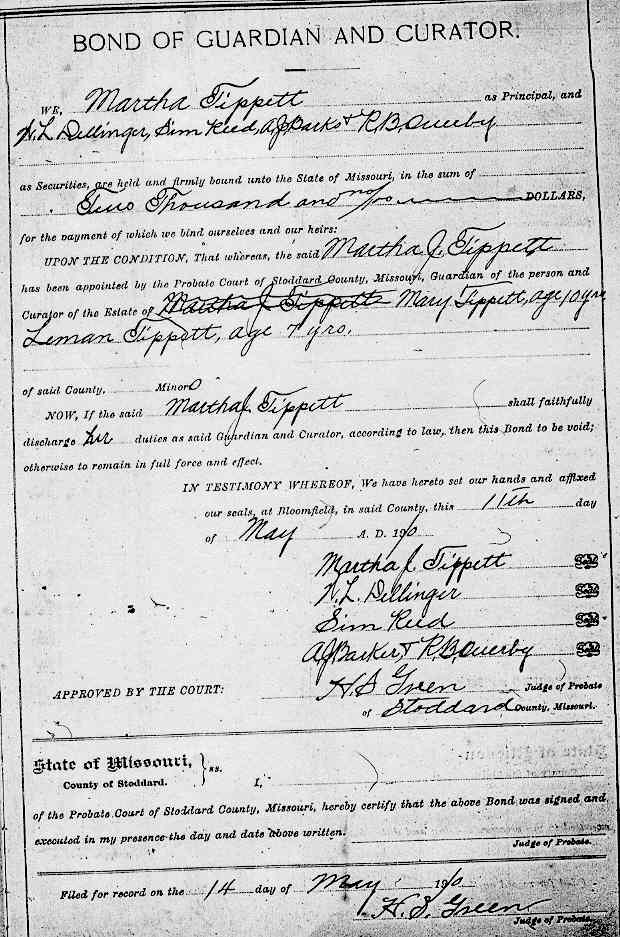 BOND OF GUARDIAN AND CURATOR.
WE, Martha Tippett as Principal, and
N. L. Dellinger, Sim Reed, A J Barks & R. B. Duerby
as Securities, are held and firmly bound unto the State of Missouri, in the sum of
Two Thousand and no/00 DOLLARS,
for the payment of which we bind ourselves and our heirs:
UPON THE CONDITION, That whereas, the said Martha J. Tippett
has been appointed by the Probate Court of Stoddard County, Missouri, Guardian of the person and
Curator of the Estate of Martha J Tippett Mary Tippett, age 10 yrs
Leman Tippett, age 7 yrs.
of said County, Minor
NOW, If the said Martha J. Tippett shall faithfully
discharge her duties as said Guardian and Curator, according to law, then this Bond to be void;
otherwise to remain in full force and effect.
IN TESTIMONY WHEREOF, We have hereto set our hands and affixed
our seals, at Bloomfield, in said County, this 11th day
of May A. D. 1910
Martha J. Tippett Seal
N. L. Dellinger Seal
Sim Reed Seal
A J Barker, & R. B. Duerby Seal
APPROVED BY THE COURT: H S Green Judge of Probate
of Stoddard County, Missouri.
State of Missouri, } ss.
County of Stoddard. I,
of the Probate Court of Stoddard County, Missouri, hereby certify that the above Bond was signed and
executed in my presence the day and date above written.
Judge of Probate.
Filed for record on the 14 day of May 1910
H. S. Green
Judge of Probate.